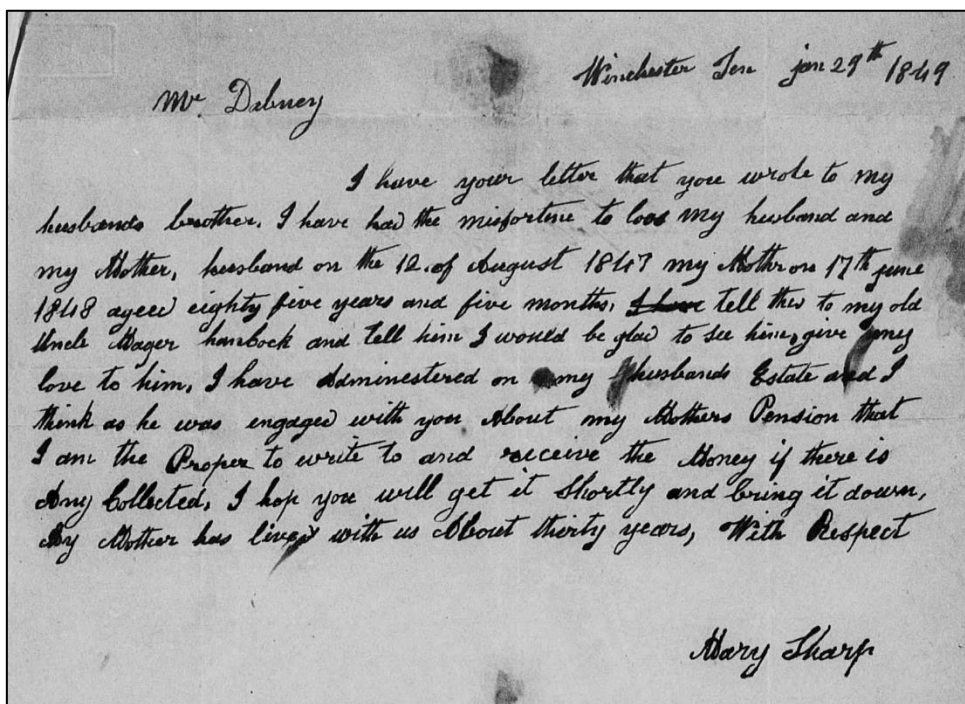 Winchester Ten jan 29th 1849
Mr Debney
I have your letter that you wrote to my
husbands brother. I have had the misfortine to loos my husband and
my Mother, husband on the 12. of August 1847 my Mothr on 17th june
1848 ageed eighty five years and five months, tell this to my old
Uncle Mager hancock and tell him I would be glad to see him, give my
love to him, I have Administered on my husbands Estate and I
think as he was engaged with you About my Mothers Pension that
I am the Proper to write to and receive the Money if there is
Any Collected, I hop you will get it Shortly and bring it down,
My Mother has lived with us About thirty years, With Respect
Mary Sharp